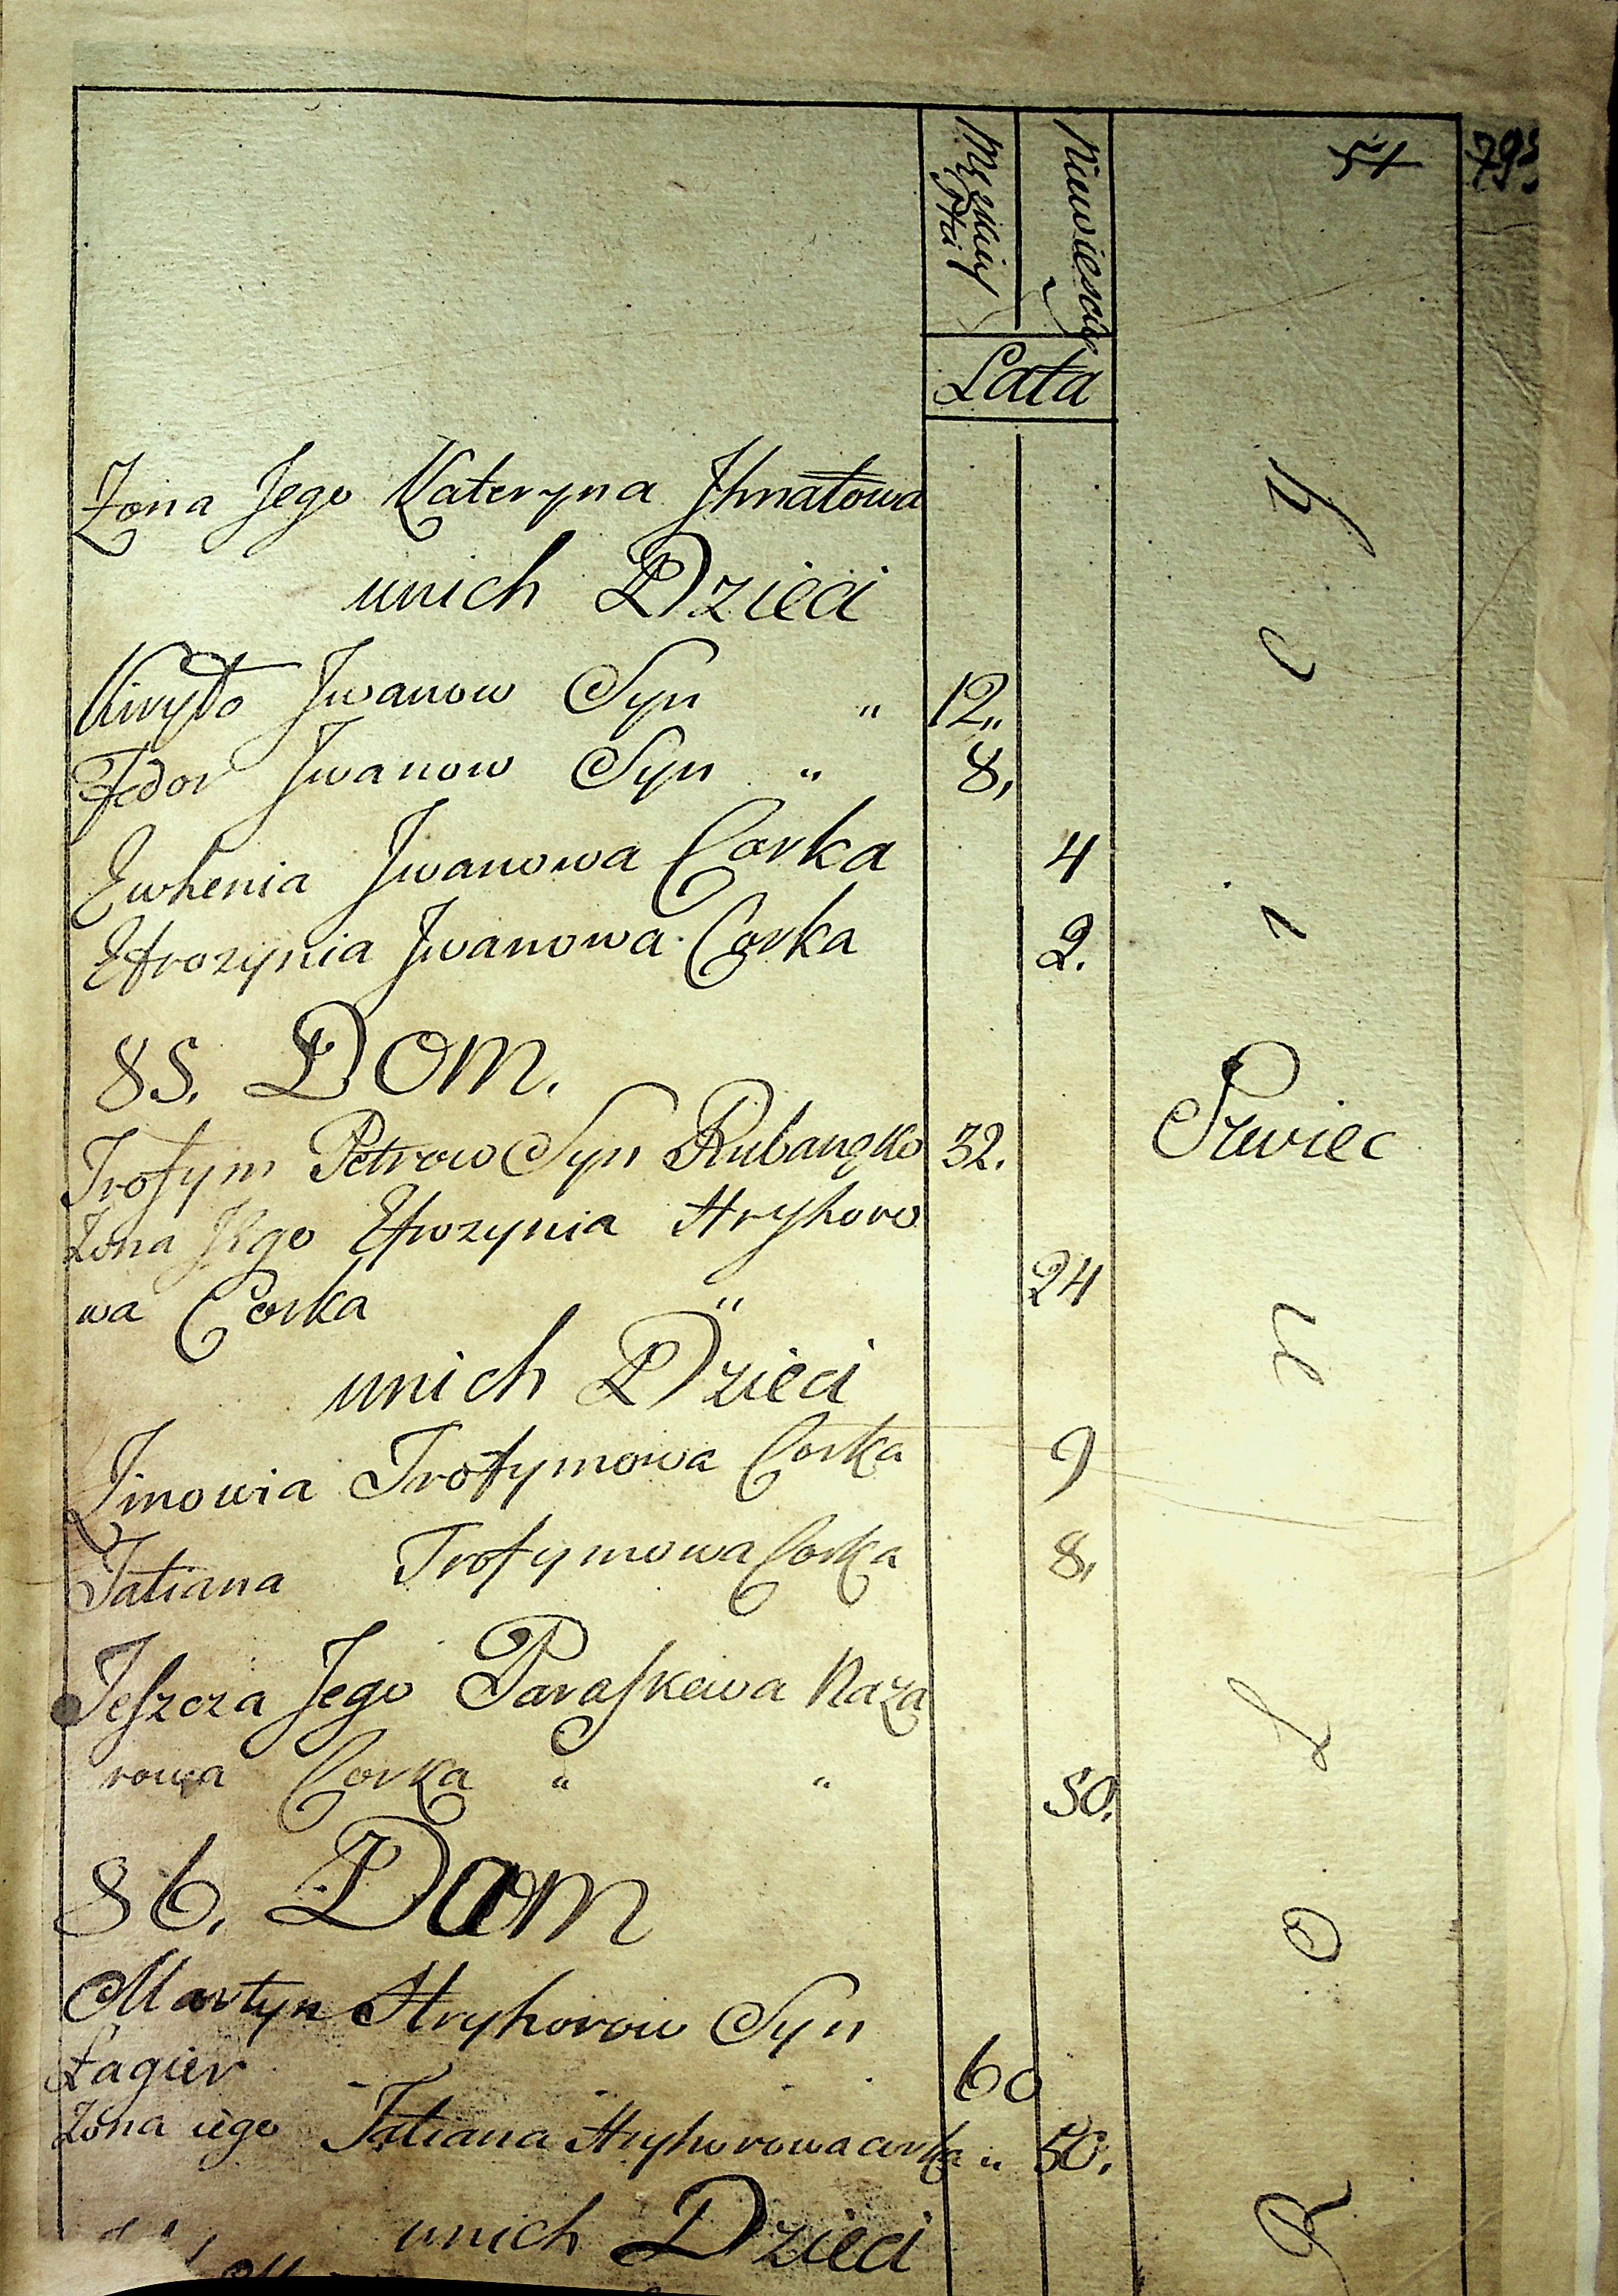 Męzkiey
Płci
Niewiesciey
54
795
Lata
Zona Jego Kateryna Jhnatowa
unich Dzieci
Kiryło Jwanow Syn " 12"
Fedor Jwanow Syn " 8,
Ewhenia Jwanowa Corka 4
Efrozynia Jwanowa Corka 2.
85. Dom.
Trofym Petrow Syn Rubanęko 32. Szwiec
Zona Jego Efrozynia Hryhoro
wa Corka " 24
unich Dzieci
Zinowia Trofymowa Corka 9
Tatiana Trofymowa Corka 8,
Teszcza Jego Paraskewa Naza
rowa Corka " " 50.
86. Dom
Martyn Hryhorow Syn
Łagier 60
Zona iego Tatiana Hryhorowa corka " 50.
unich Dzieci
R o l n i c y